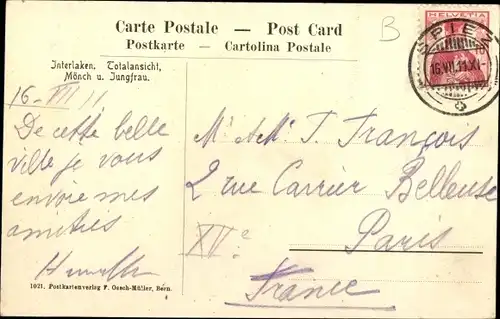 Carte Postale — Post Card
Postkarte — Cartolina Postale
B
HELVETIA
SPIEZ
16.VII.11.XI-
Interlaken. Totalansicht,
Mönch u. Jungfrau.
16-VII 11
De cette belle
ville je vous
envoie mes
amitiés
Mr & Me T. François
2 rue Carrier Belleuse
Paris
XVe
France
1021. Postkartenverlag F. Gosch-Müller, Bern.